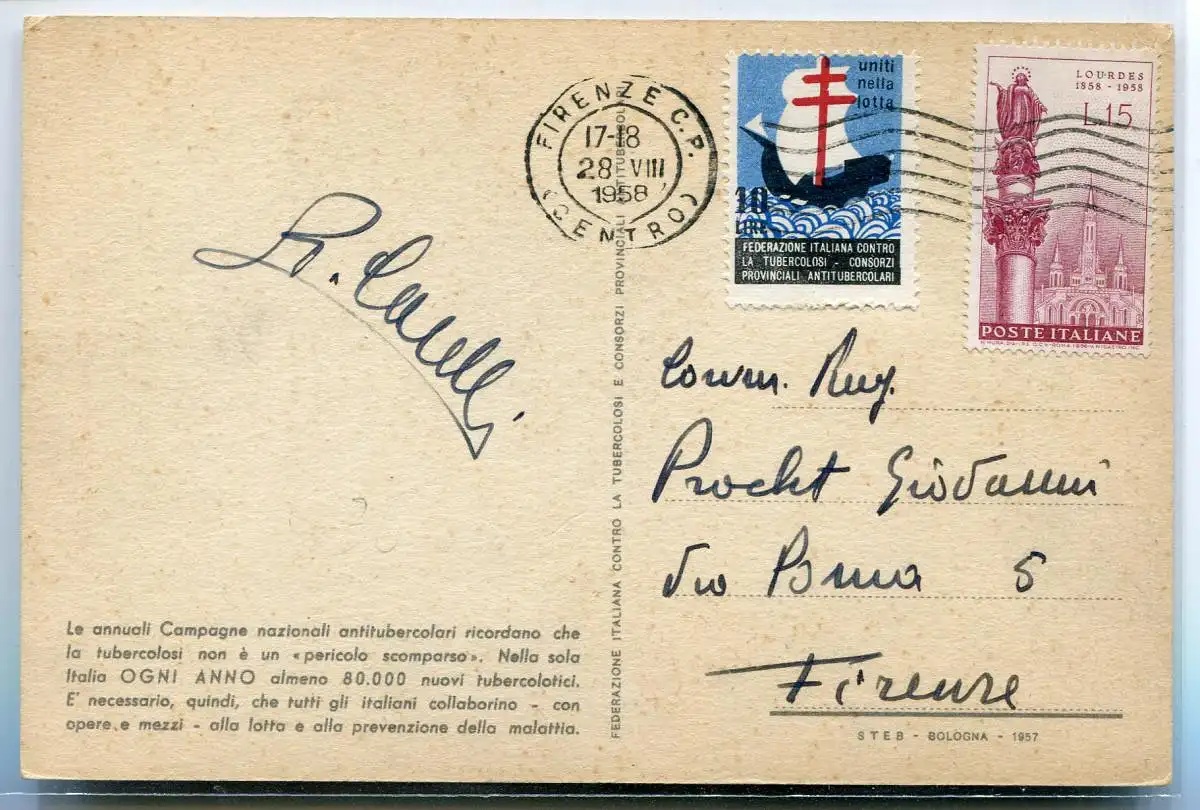 FIRENZE C.P.
17-18
28 VIII
1958
(CENTRO)
uniti
nella
lotta
10
LIRE
FEDERAZIONE ITALIANA CONTRO
LA TUBERCOLOSI - CONSORZI
PROVINCIALI ANTITUBERCOLARI
LOURDES
1858 - 1958
L.15
POSTE ITALIANE
Comm. Rag.
Procht Giovanni
5
Firenze
FEDERAZIONE ITALIANA CONTRO LA TUBERCOLOSI E CONSORZI PROVINCIALI ANTITUBERCOLARI
Le annuali Campagne nazionali antitubercolari ricordano che
la tubercolosi non è un «pericolo scomparso». Nella sola
Italia OGNI ANNO almeno 80.000 nuovi tubercolotici.
E' necessario, quindi, che tutti gli italiani collaborino - con
opere e mezzi - alla lotta e alla prevenzione della malattia.
STEB - BOLOGNA - 1957